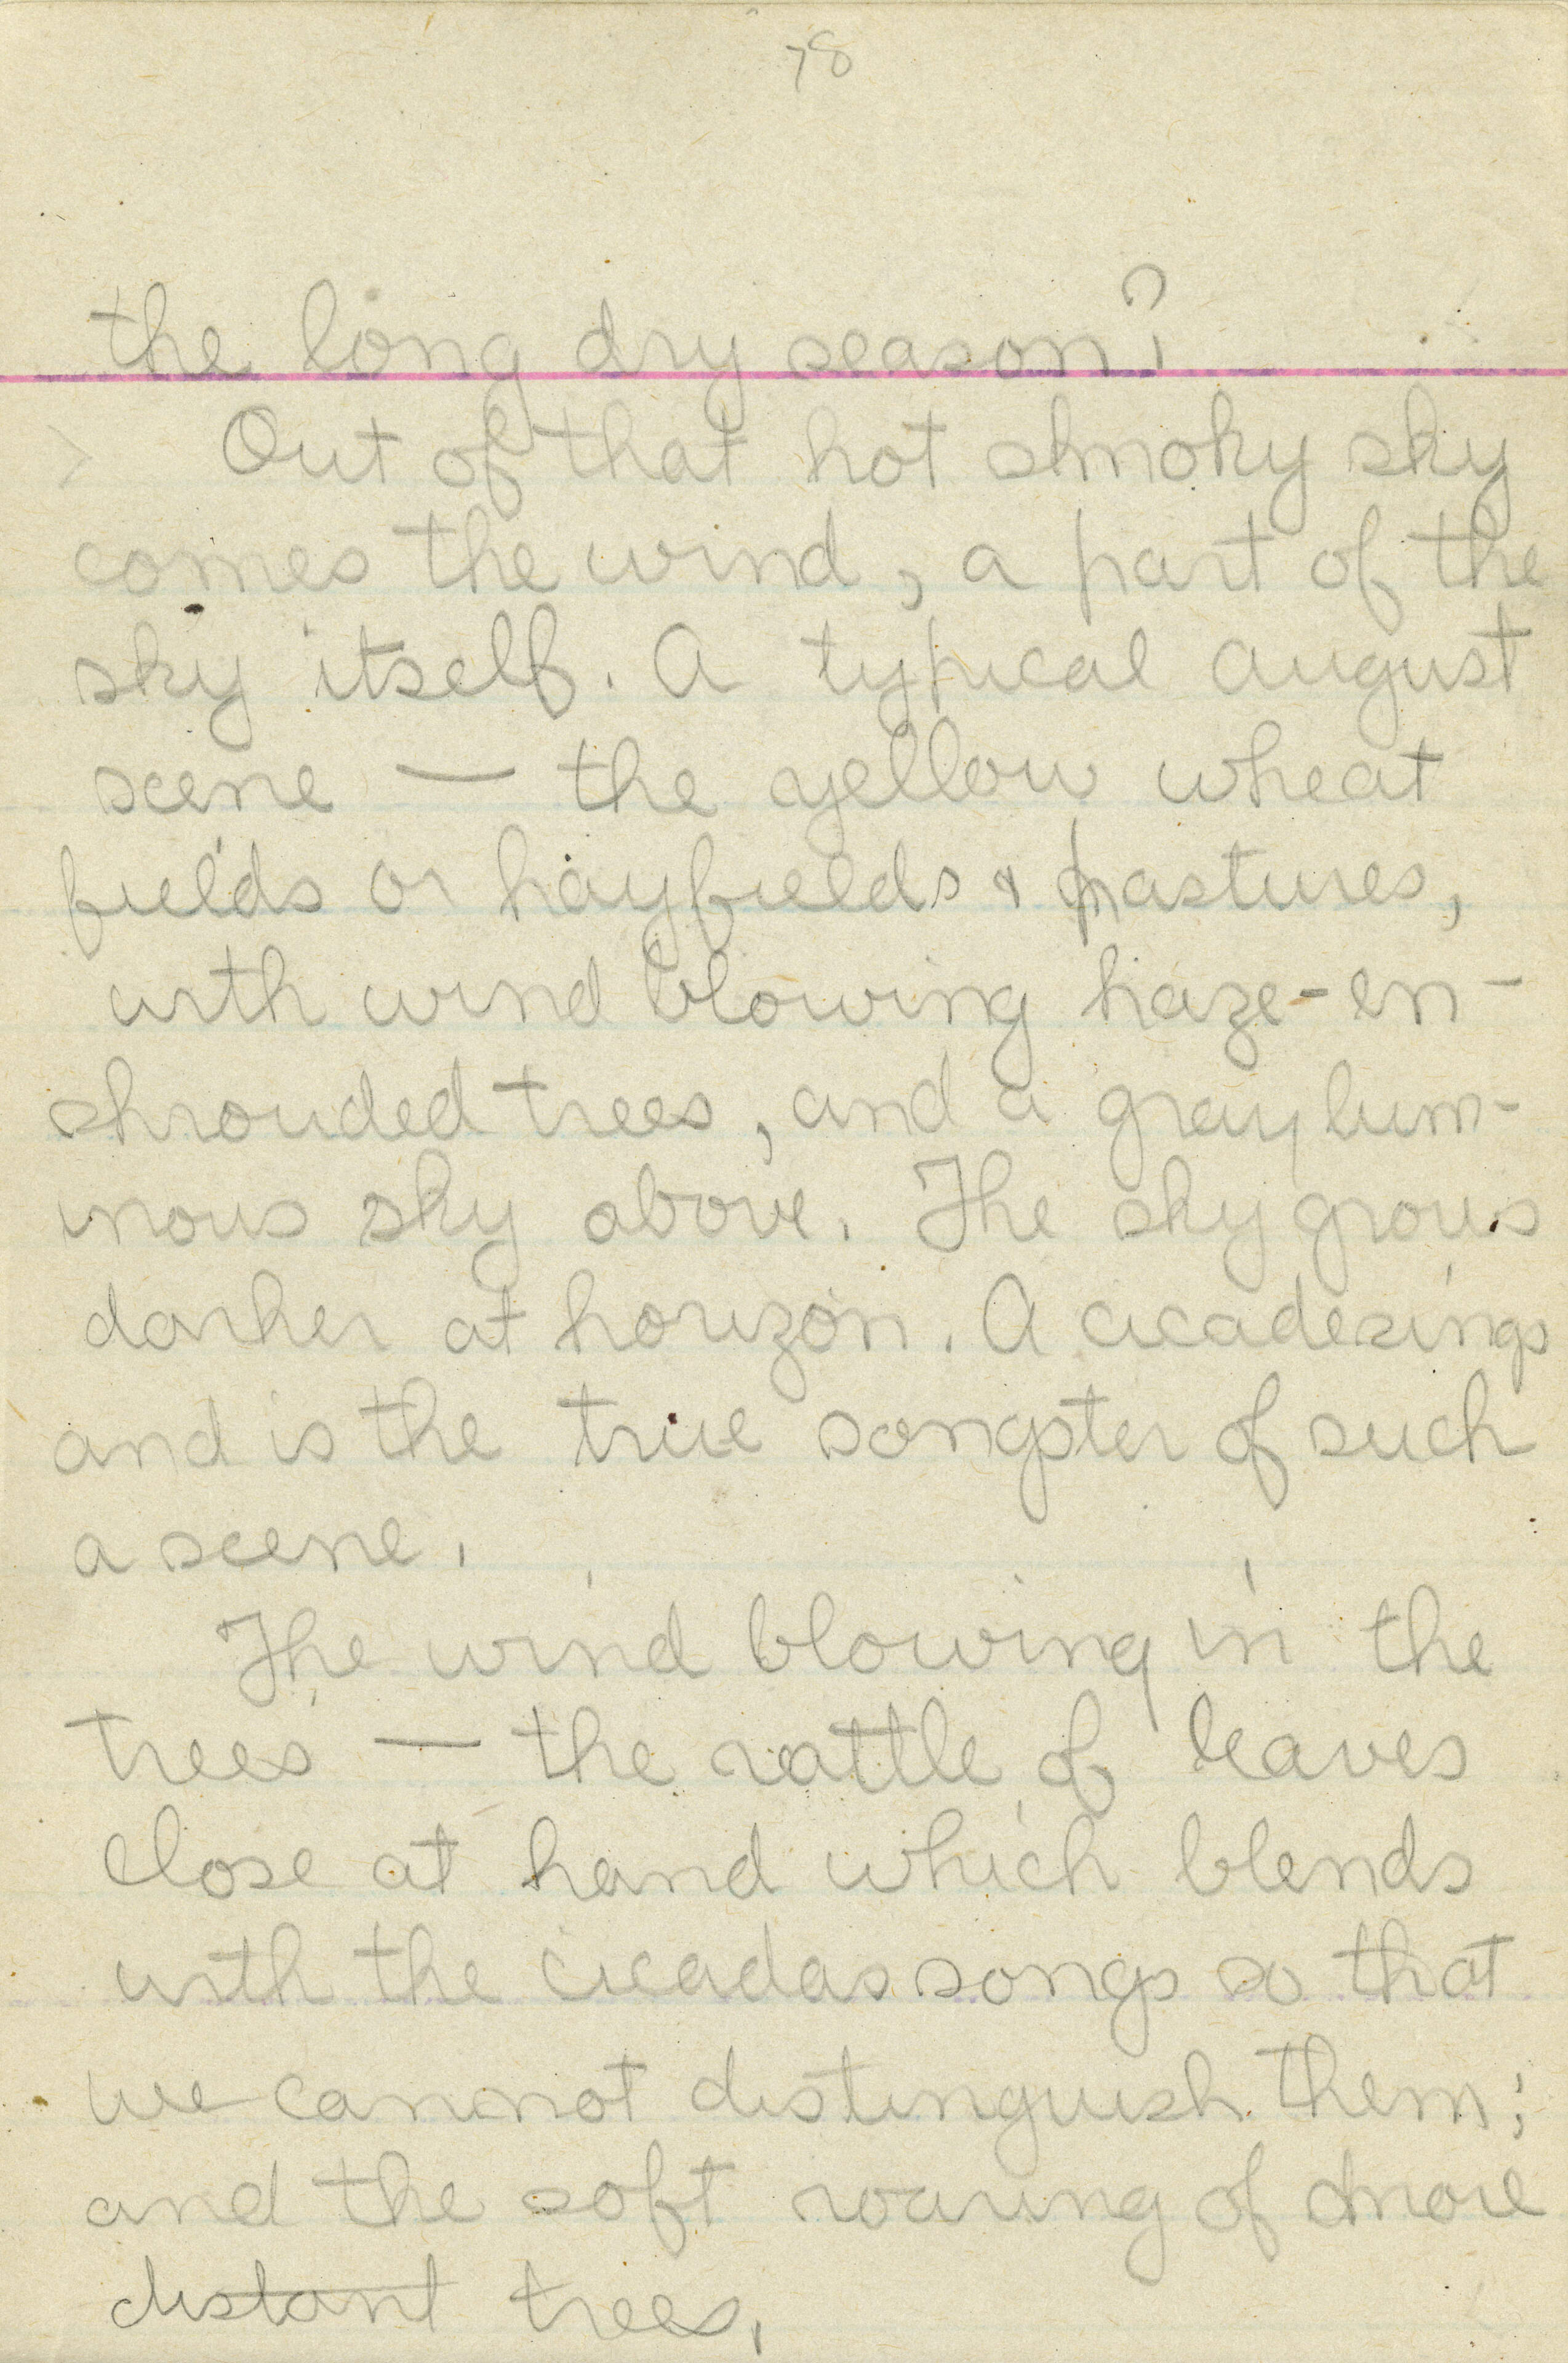 78
the long dry season?
> Out of that hot smoky sky
comes the wind, a part of the
sky itself. A typical August
scene — the yellow wheat
fields or hayfields & pastures,
with wind blowing haze-en-
shrouded trees, and a gray lum-
inous sky above. The sky grows
darker at horizon. A cicade sings
and is the true songster of such
a scene.
The wind blowing in the
trees — the rattle of leaves
close at hand which blends
with the cicadas songs so that
we cannot distinguish them;
and the soft roaring of more
distant trees.